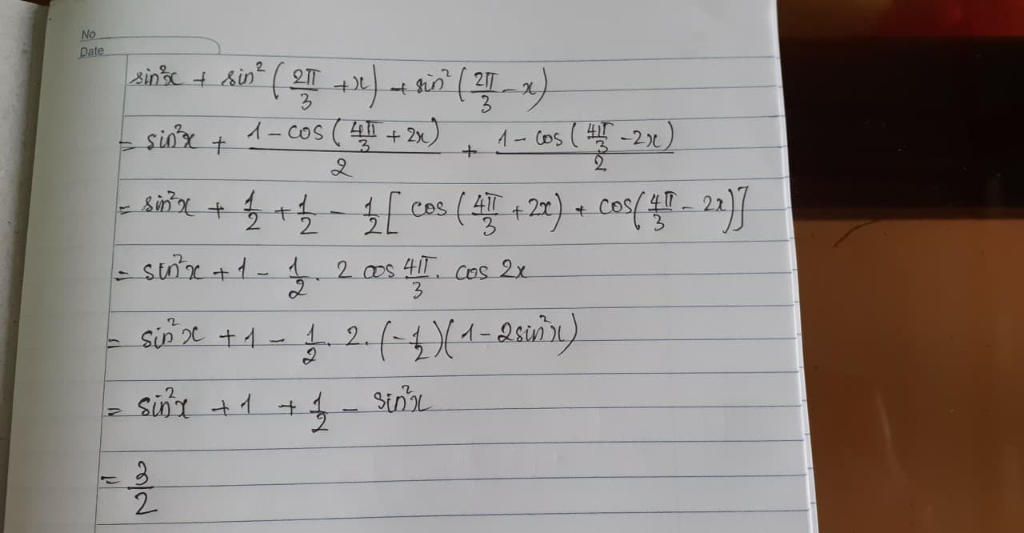 No
Date
sin²x + sin²(2π/3 + x) + sin²(2π/3 - x)
= sin²x + (1 - cos(4π/3 + 2x))/2 + (1 - cos(4π/3 - 2x))/2
= sin²x + 1/2 + 1/2 - 1/2[cos(4π/3 + 2x) + cos(4π/3 - 2x)]
= sin²x + 1 - 1/2 . 2 cos 4π/3 . cos 2x
= sin²x + 1 - 1/2 . 2 . (-1/2)(1 - 2sin²x)
= sin²x + 1 + 1/2 - sin²x
= 3/2